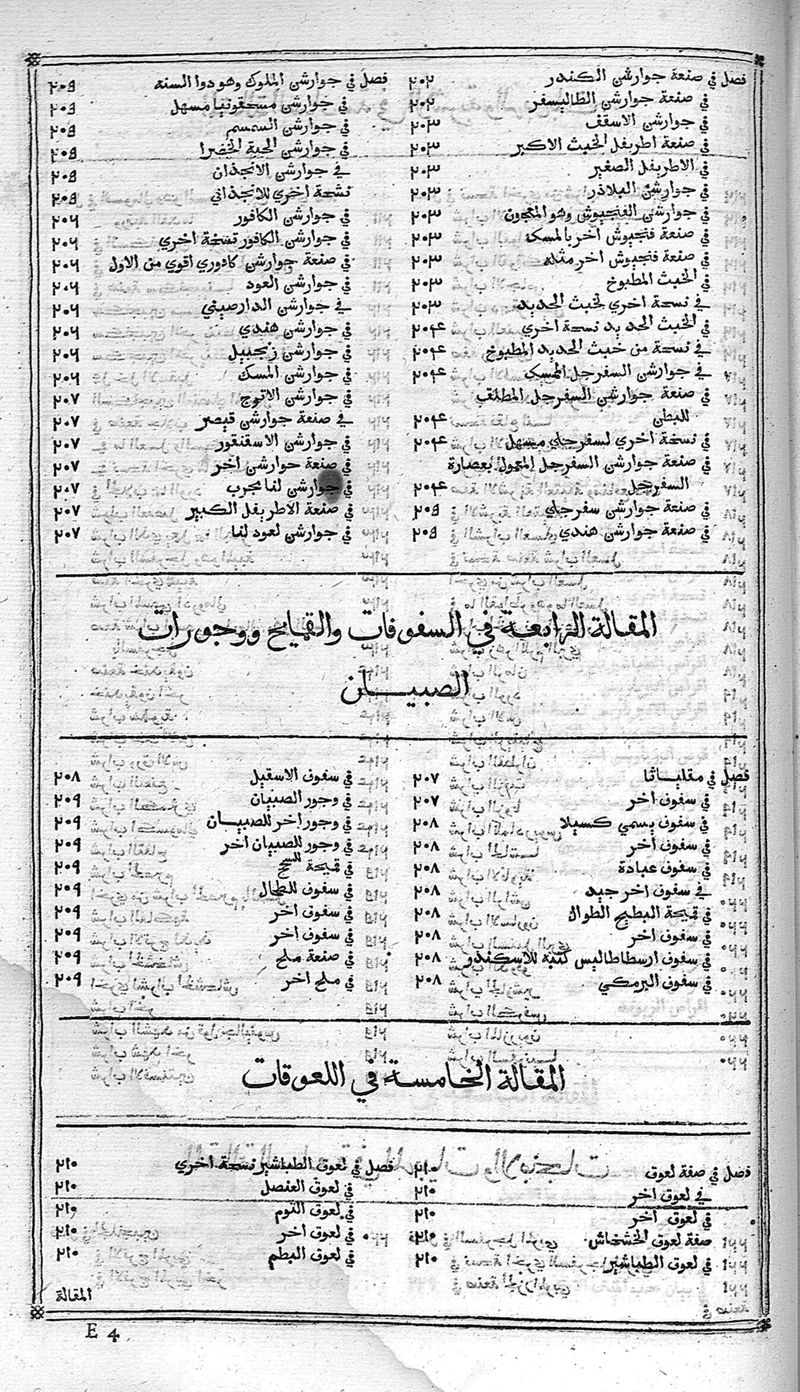 فصل في صنعة جوارشن الكندر ٢٠٢
في صنعة جوارشن الطاليسفر ٢٠٢
في جوارشن الاسقف ٢٠٣
في صنعة اطريفل الخبث الاكبر ٢٠٣
في الاطريفل الصغير ٢٠٣
في جوارشن البلاذر ٢٠٣
في جوارشن الفنجيوش وهو المعجون ٢٠٣
في صنعة فنجيوش اخر بالمسك ٢٠٣
في صنعة فنجيوش اخر مثله ٢٠٣
في الخبث المطبوخ ٢٠٣
في نسخة اخري لخبث الحديد ٢٠٣
في الخبث الحديد نسخة اخري ٢٠٤
في نسخة من خبث الحديد المطبوخ ٢٠٤
في جوارشن السفرجل الممسك ٢٠٤
في صنعة جوارشن السفرجل المطلف
للبطن ٢٠٤
في نسخة اخري لسفرجلي مسهل ٢٠٤
في صنعة جوارشن السفرجل المعمول بعصارة
السفرجل ٢٠٤
في صنعة جوارشن سفرجلي ٢٠٥
في صنعة جوارشن هندي ٢٠٥
فصل في جوارشن الملوك وهو دوا السنه ٢٠٥
في جوارشن مسحقونيا مسهل ٢٠٥
في جوارشن السمسم ٢٠٥
في جوارشن الحبة الخضرا ٢٠٥
في جوارشن الانجذان ٢٠٥
نسخة اخري للانجذاني ٢٠٥
في جوارشن الكافور ٢٠٦
في جوارشن الكافور نسخة اخري ٢٠٦
في صنعة جوارشن كافوري اقوي من الاول ٢٠٦
في جوارشن العود ٢٠٦
في جوارشن الدارصيني ٢٠٦
في جوارشن هندي ٢٠٦
في جوارشن زنجبيل ٢٠٦
في جوارشن المسك ٢٠٦
في جوارشن الاترج ٢٠٧
في صنعة جوارشن قيصر ٢٠٧
في جوارشن الاسقنقور ٢٠٧
في صنعة جوارشن اخر ٢٠٧
في جوارشن لنا مجرب ٢٠٧
في صنعة الاطريفل الكبير ٢٠٧
في جوارشن لعود لنا ٢٠٧
المقالة الرابعة في السفوفات والقمايح ووجورات
الصبيان
فصل في مقلياثا ٢٠٧
في سفوف اخر ٢٠٧
في سفوف يسمي كسيلا ٢٠٨
في سفوف اخر ٢٠٨
في سفوف عبادة ٢٠٨
في سفوف اخر جيد ٢٠٨
في قميحة البطيخ الطوال ٢٠٨
في سفوف اخر ٢٠٨
في سفوف ارسطاطاليس كتبه للاسكندر ٢٠٨
في سفوف البرمكي ٢٠٨
في سفوف الاسقيل ٢٠٨
في وجور الصبيان ٢٠٩
في وجور اخر للصبيان ٢٠٩
في وجور للصبيان اخر ٢٠٩
في قميحة للسحج ٢٠٩
في سفوف للطحال ٢٠٩
في سفوف اخر ٢٠٩
في سفوف اخر ٢٠٩
في صنعة ملح ٢٠٩
في ملح اخر ٢٠٩
المقالة الخامسة في اللعوقات
فصل في صفة لعوق ٢١٠
في لعوق اخر ٢١٠
في لعوق اخر ٢١٠
صفة لعوق الخشخاش ٢١٠
في لعوق الطباشير ٢١٠
فصل في لعوق الطباشير نسخة اخري ٢١٠
في لعوق العنصل ٢١٠
في لعوق الثوم ٢١٠
في لعوق اخر ٢١٠
في لعوق البطم ٢١٠
المقالة
E 4